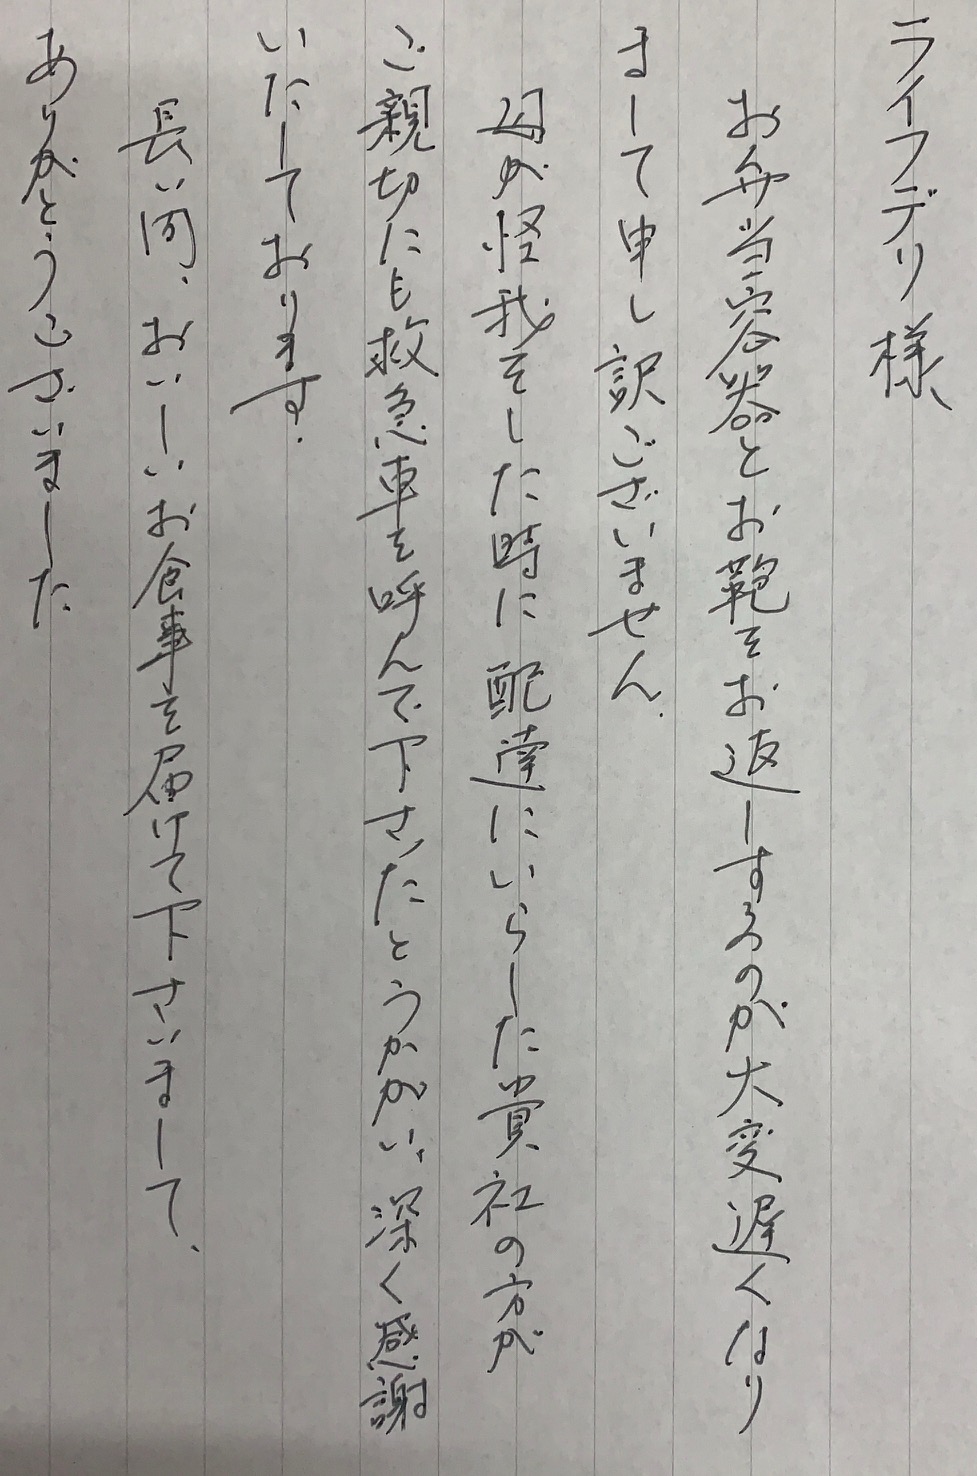 ライフデリ様
お弁当容器とお鞄をお返しするのが大変遅くなり
まして申し訳ございません。
母が怪我をした時に配達にいらした貴社の方が
ご親切にも救急車を呼んで下さったとうかがい、深く感謝
いたしております。
長い間、おいしいお食事を届けて下さいまして、
ありがとうございました